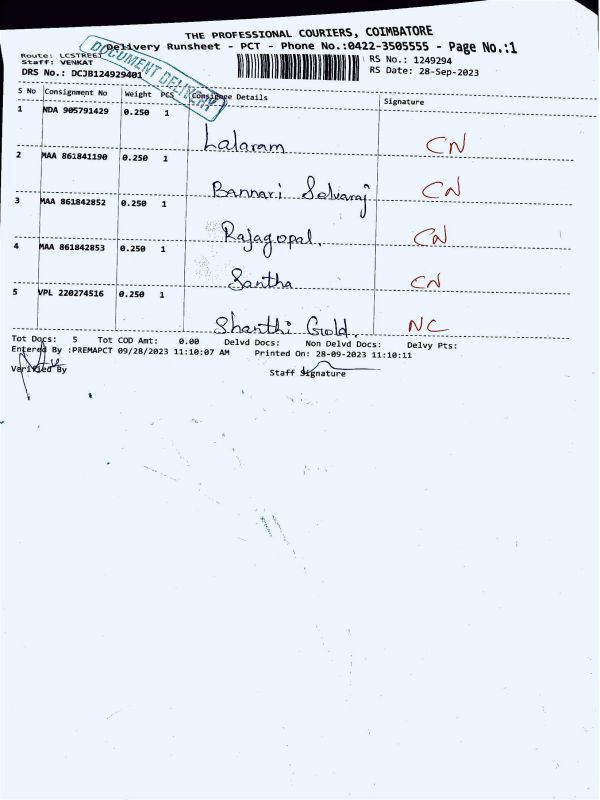 THE PROFESSIONAL COURIERS, COIMBATORE
Delivery Runsheet - PCT - Phone No.:0422-3505555 - Page No.:1
Route: LCSTREET
RS No.: 1249294
Staff: VENKAT
RS Date: 28-Sep-2023
DRS No.: DCJB124929401
DOCUMENT DELIVERY
S No Consignment No Weight PCS Consignee Details Signature
1 NDA 905791429 0.250 1
Lalaram CN
2 MAA 861841190 0.250 1
Bannari Selvaraj CN
3 MAA 861842852 0.250 1
Rajagopal. CN
4 MAA 861842853 0.250 1
Santha CN
5 VPL 220274516 0.250 1
Shanthi Gold. NC
Tot Docs: 5 Tot COD Amt: 0.00 Delvd Docs: Non Delvd Docs: Delvy Pts:
Entered By :PREMAPCT 09/28/2023 11:10:07 AM Printed On: 28-09-2023 11:10:11
Verified By
Staff Signature